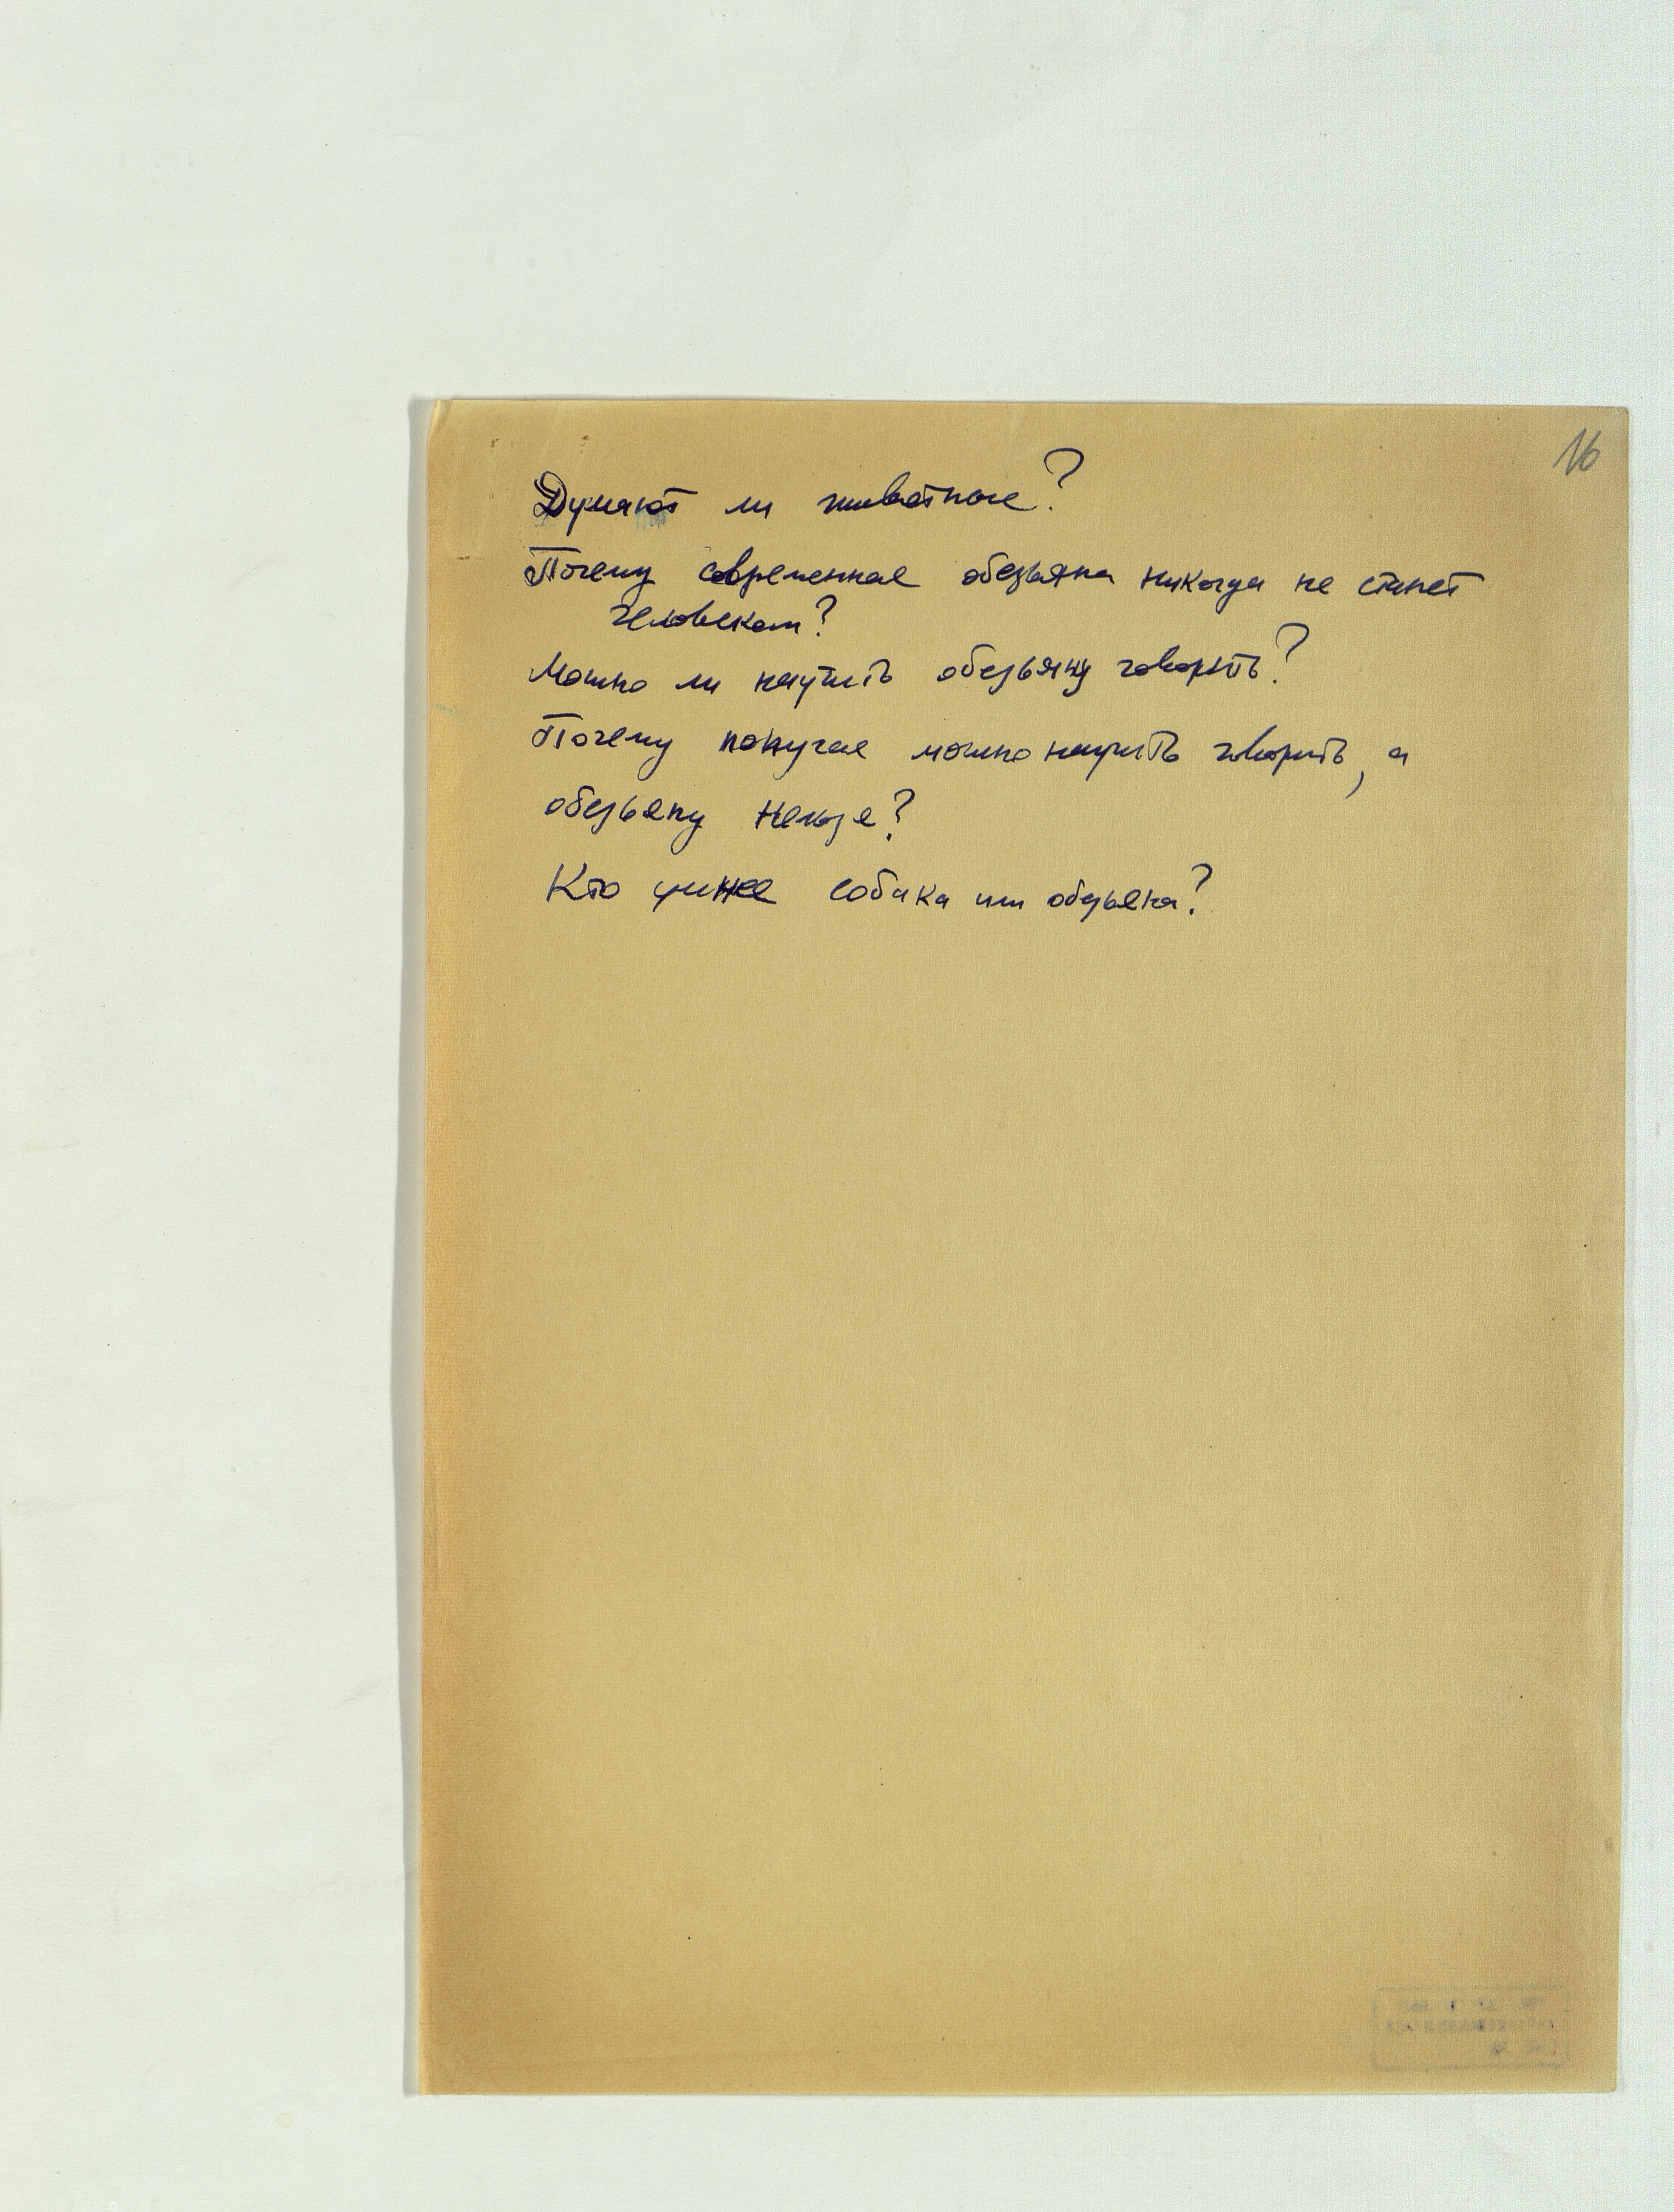 16
Думают ли животные?
Почему современная обезьяна никогда не станет
человеком?
Можно ли научить обезьяну говорить?
Почему попугая можно научить говорить, а
обезьяну нельзя?
Кто умнее собака или обезьяна?